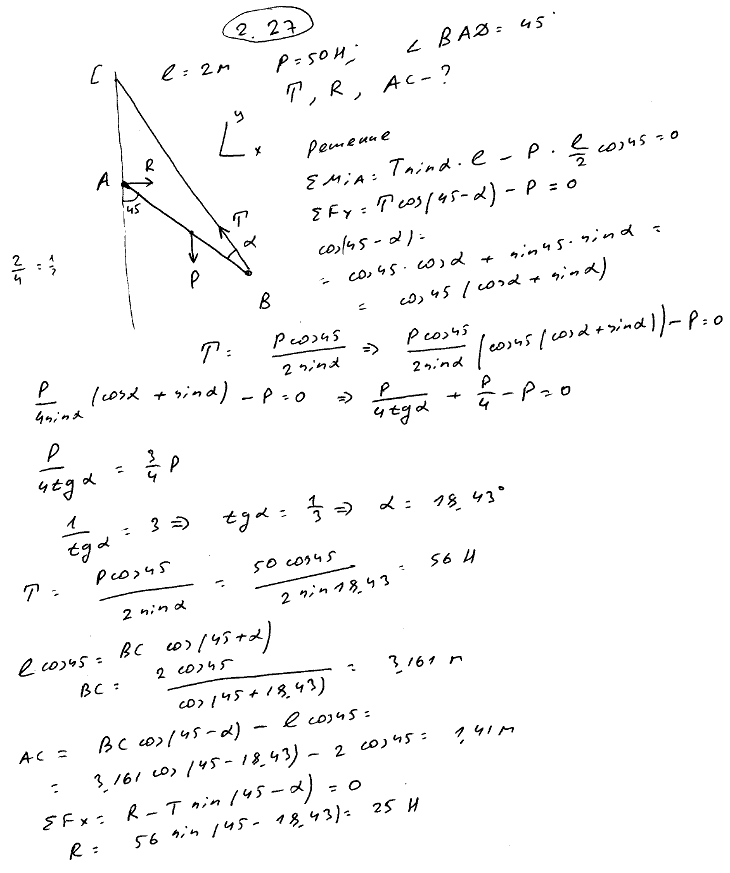 2.27
l = 2м P = 50 Н; ∠ BAD = 45°
T, R, AC - ?
C
y
x
Решение
A
R
45
T
α
P
B
ΣMiA = T sin α · l - P · l/2 cos 45 = 0
ΣFy = T cos(45 - α) - P = 0
cos(45 - α) =
= cos 45 · cos α + sin 45 · sin α =
= cos 45 (cos α + sin α)
2/4 = 1/2
T = P cos 45 / 2 sin α ⇒ P cos 45 / 2 sin α (cos 45 (cos α + sin α)) - P = 0
P / 4 sin α (cos α + sin α) - P = 0 ⇒ P / 4 tg α + P/4 - P = 0
P / 4 tg α = 3/4 P
1 / tg α = 3 ⇒ tg α = 1/3 ⇒ α = 18,43°
T = P cos 45 / 2 sin α = 50 cos 45 / 2 sin 18,43 = 56 Н
l cos 45 = BC cos(45 + α)
BC = 2 cos 45 / cos(45 + 18,43) = 3,161 м
AC = BC cos(45 - α) - l cos 45 =
= 3,161 cos(45 - 18,43) - 2 cos 45 = 1,41 м
ΣFx = R - T sin(45 - α) = 0
R = 56 sin(45 - 18,43) = 25 Н